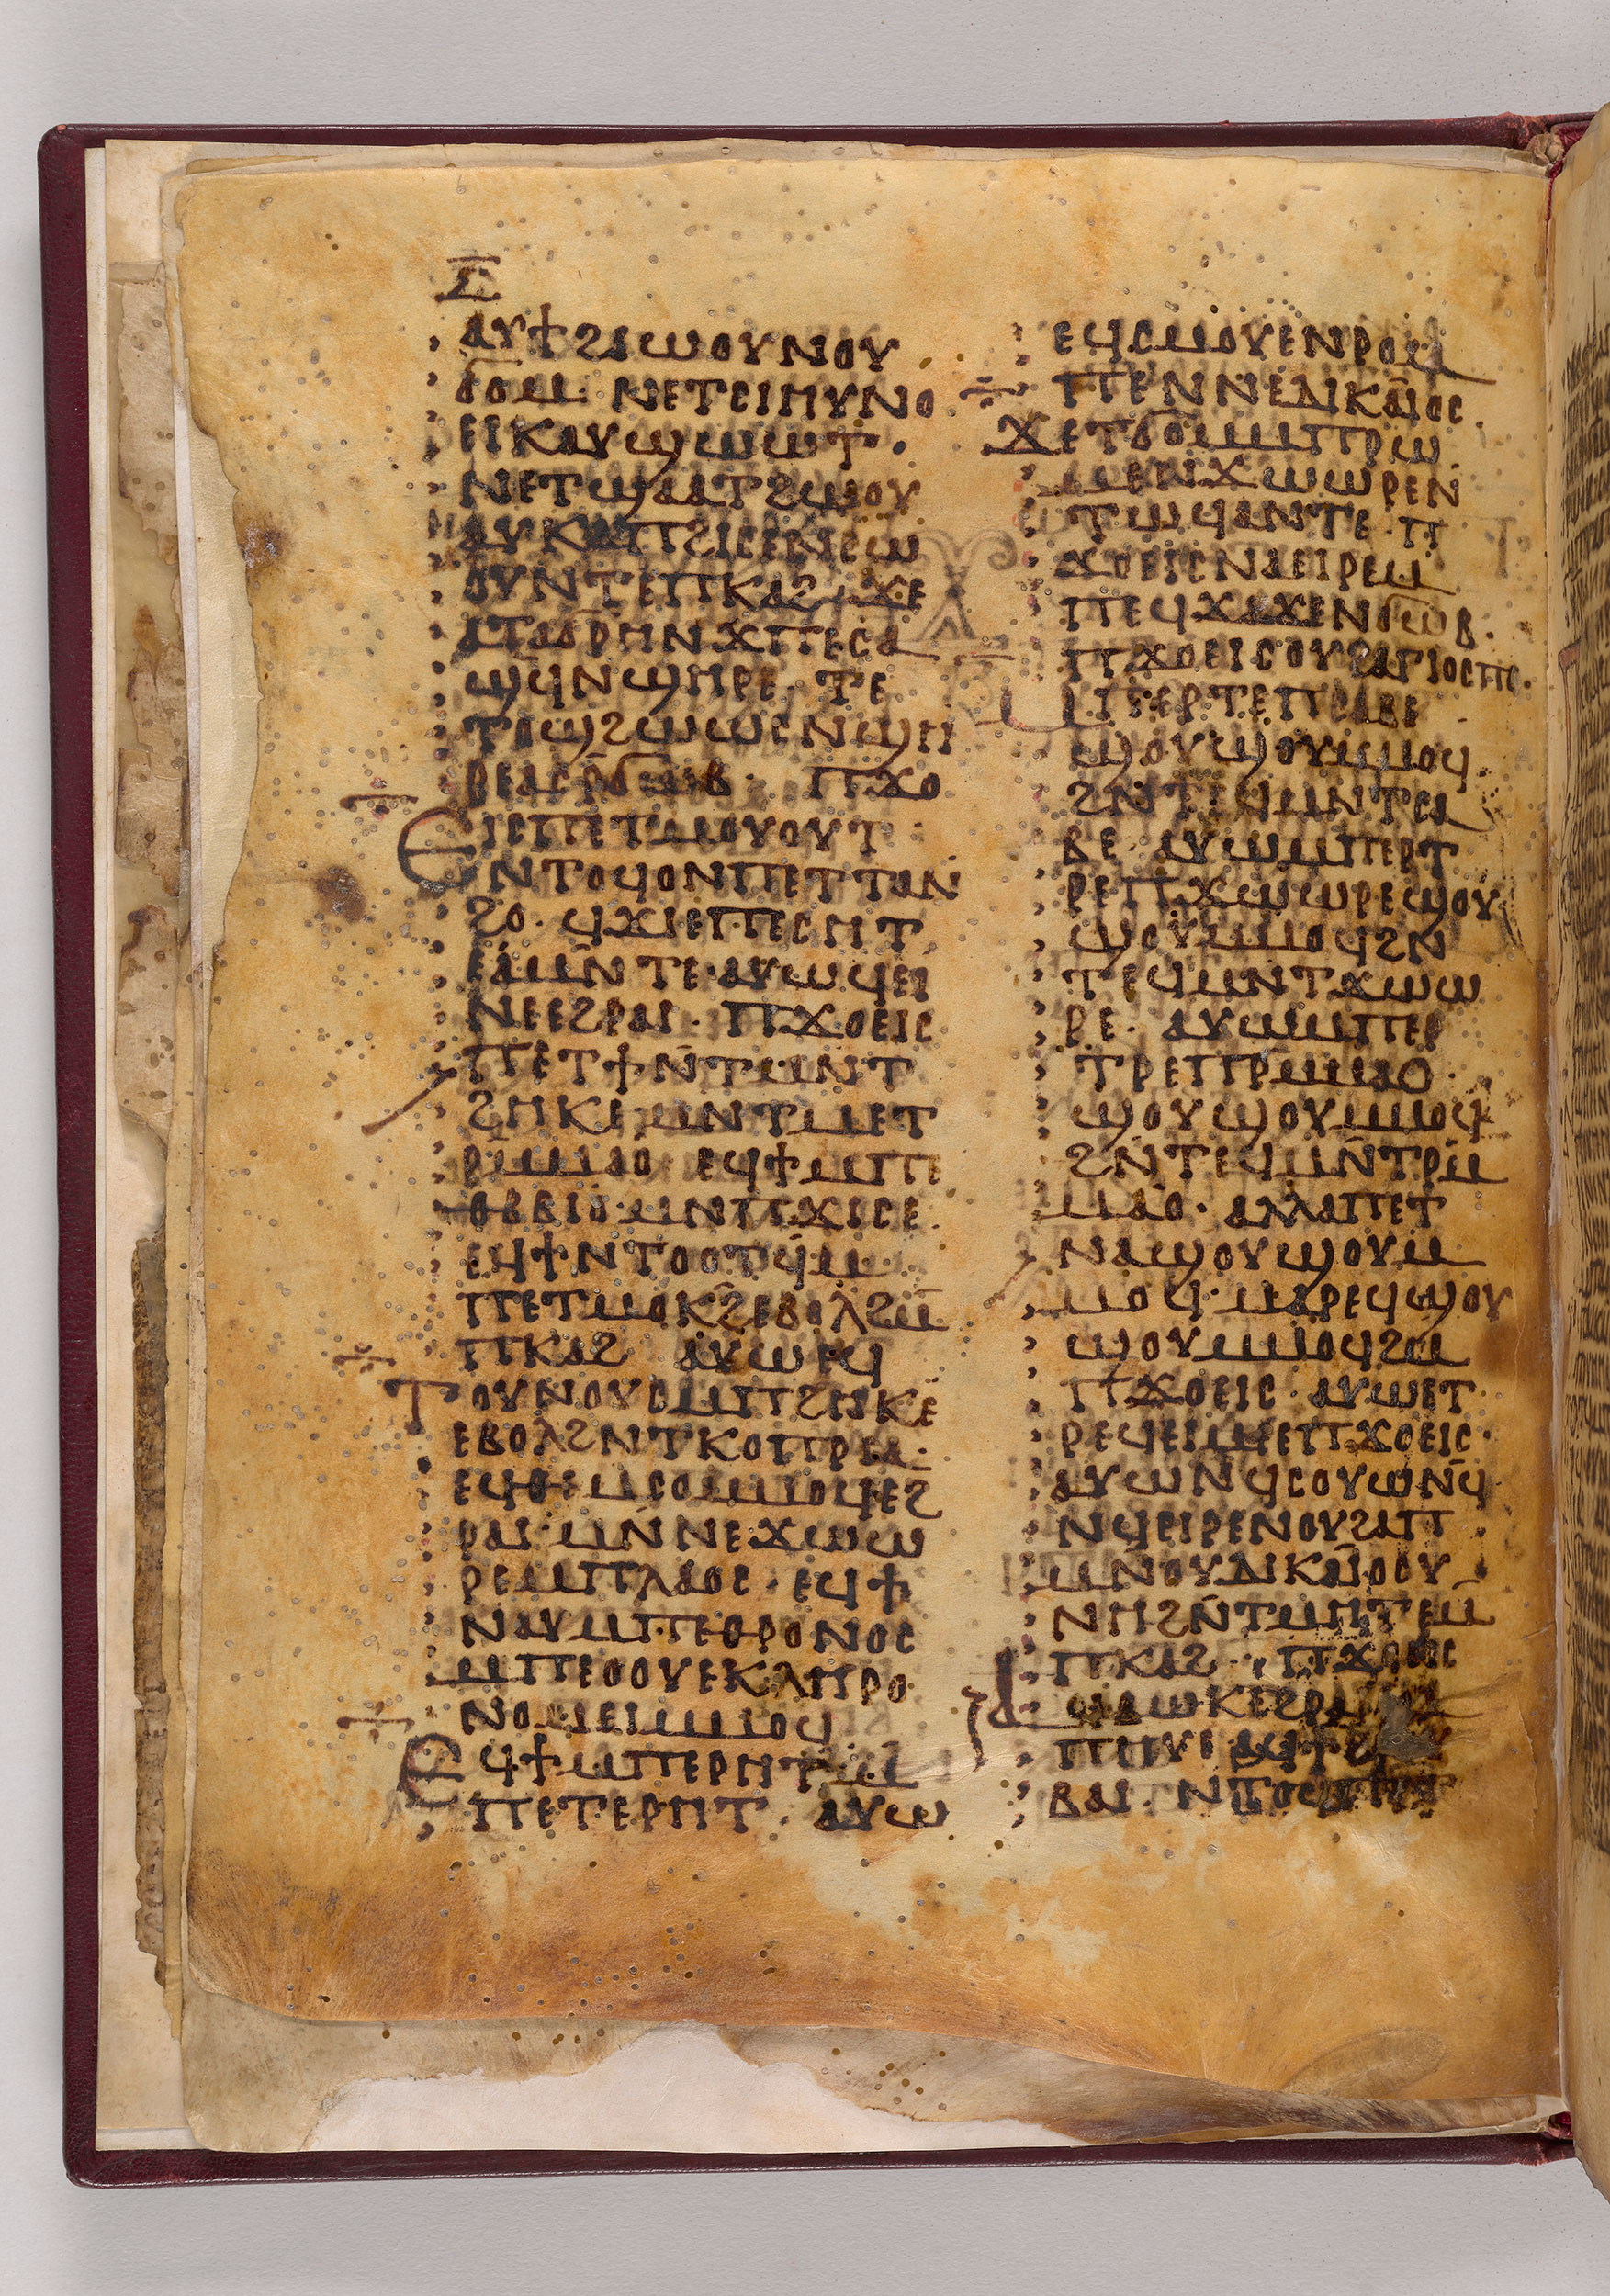 ⲋ̅
ⲁⲩϯϩⲓⲱⲟⲩⲛⲟⲩ
ϭⲟⲙ· ⲛⲉⲧⲥⲓⲏⲩⲛⲟ
ⲉⲓⲕⲁⲩϣⲱⲱⲧ·
ⲛⲉⲧϣⲁⲁⲧϩⲱⲟⲩ
ⲁⲩⲕⲁⲡϩⲓⲥⲉⲛⲥⲱ
ⲟⲩⲛⲧⲉⲡⲕⲁϩ· ϫⲉ
ⲁⲧⲁϭⲣⲏⲛϫⲡⲉⲥⲁ
ϣϥⲛϣⲏⲣⲉ· ⲧⲉ
ⲧⲟϣϩⲱⲱⲥⲛϣⲏ
ⲣⲉⲁⲥⲣ̄ϭⲱⲃ· ⲡϫⲟ
ⲉⲓⲥⲡⲉⲧⲙⲟⲩⲟⲩⲧ·
ⲛⲧⲟϥⲟⲛⲡⲉⲧⲧⲁⲛ
ϩⲟ· ϥϫⲓⲉⲡⲉⲥⲏⲧ
ⲉⲁⲙⲛ̄ⲧⲉ· ⲁⲩⲱϥⲉⲓ
ⲛⲉⲉϩⲣⲁⲓ· ⲡϫⲟⲉⲓⲥ
ⲡⲉⲧϯⲛ̄ⲧⲙⲛⲧ
ϩⲏⲕⲉⲙⲛⲧⲙⲉⲧ
ⲣⲙⲙⲁⲟ· ⲉϥϯⲙⲡⲉ
ⲑⲃⲃⲓⲟ· ⲙⲛⲡϫⲓⲥⲉ
ⲉϥϯⲛⲧⲟⲟⲧϥ̄ⲙ
ⲡⲉⲧⲙⲟⲕϩⲉⲃⲟⲗϩⲙ̄
ⲡⲕⲁϩ ⲁⲩⲱⲉϥ
ⲧⲟⲩⲛⲟⲩⲥⲙⲡϩⲏⲕⲉ
ⲉⲃⲟⲗϩⲛⲧⲕⲟⲡⲣⲓⲁ·
ⲉϥⲑⲉⲙⲥⲟⲙⲙⲟϥⲉϩ
ⲣⲁⲓ· ⲙⲛ̄ⲛⲉϫⲱⲱ
ⲣⲉⲙⲡⲗⲁⲟⲥ· ⲉϥϯ
ⲛⲁⲩⲙⲡⲉⲑⲣⲟⲛⲟⲥ
ⲙⲡⲉⲟⲟⲩⲉⲕⲗⲏⲣⲟ
ⲛⲟⲙⲉⲓⲙⲙⲟϥ
ⲉϥϯⲙⲡⲉⲣⲏⲧⲙ̄
ⲡⲉⲧⲉⲣⲏⲧ· ⲁⲩⲱ
ⲉϥⲥⲙⲟⲩⲉⲛⲣⲟⲙ
ⲡⲉⲛⲛⲉⲇⲓⲕⲁⲓⲟⲥ·
ϫⲉⲧϭⲟⲙⲙⲡⲣⲱ
ⲙⲉⲛϫⲱⲱⲣⲉⲛ
ⲧⲱϥⲁⲛⲧⲉ· ⲡ
ϫⲟⲉⲓⲥⲛⲁⲉⲓⲣⲉⲙ
ⲡⲉϥϫⲁϫⲉⲛϭⲱⲃ·
ⲡϫⲟⲉⲓⲥⲟⲩϩⲁⲅⲓⲟⲥⲡⲉ·
ⲙⲡⲉⲣⲧⲉⲡⲥⲁⲃⲉ
ϣⲟⲩϣⲟⲩⲙⲙⲟϥ
ϩⲛⲧⲉϥⲙⲛⲧⲥⲁ
ⲃⲉ· ⲁⲩⲱⲙⲡⲉⲣⲧ
ⲣⲉⲡϫⲱⲱⲣⲉϣⲟⲩ
ϣⲟⲩⲙⲙⲟϥϩⲛ
ⲧⲉϥⲙⲛⲧϫⲱⲱ
ⲣⲉ· ⲁⲩⲱⲙⲡⲉⲣ
ⲧⲣⲉⲡⲣⲙⲙⲁⲟ·
ϣⲟⲩϣⲟⲩⲙⲙⲟϥ
ϩⲛ̄ⲧⲉϥⲙⲛ̄ⲧⲣⲙ̄
ⲙⲁⲟ· ⲁⲗⲗⲁⲡⲉⲧ
ⲛⲁϣⲟⲩϣⲟⲩⲙ
ⲙⲟϥ· ⲙⲁⲣⲉϥϣⲟⲩ
ϣⲟⲩⲙⲙⲟϥϩⲙ
ⲡϫⲟⲉⲓⲥ· ⲁⲩⲱⲉⲧ
ⲣⲉϥⲉⲓⲙⲉⲉⲡϫⲟⲉⲓⲥ·
ⲁⲩⲱⲛϥⲥⲟⲩⲱⲛϥ
ⲛϥⲉⲓⲣⲉⲛⲟⲩϩⲁⲡ
ⲙⲛⲟⲩⲇⲓⲕⲁⲓⲟⲥⲩ
ⲛⲏϩⲛ̄ⲧⲙⲏⲧⲉⲙ̄
ⲡⲕⲁϩ· ⲡϫⲟⲉⲓⲥ
ⲁϥⲁⲱⲕⲉϩⲣⲁⲓ
ⲡⲏⲩⲉ ⲁϥϯ
ⲃⲁⲓ· ⲛⲧⲟϥ